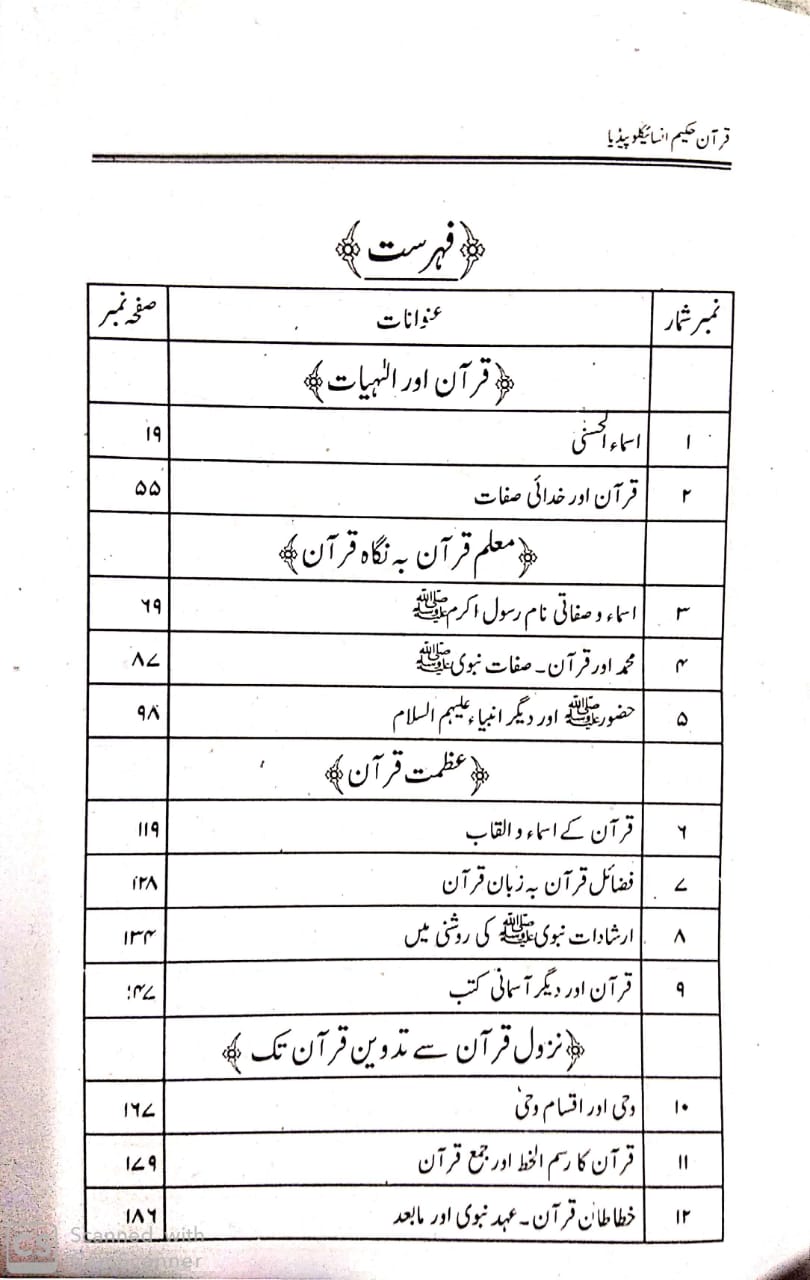 قرآن حکیم انسائیکلوپیڈیا
﴿فہرست﴾
نمبر شمار عنوانات صفحہ نمبر
﴿قرآن اور الٰہیات﴾
۱ اسماء الحسنٰی ۱۹
۲ قرآن اور خدائی صفات ۵۵
﴿معلم قرآن بہ نگاہ قرآن﴾
۳ اسماء و صفاتی نام رسول اکرم ﷺ ۶۹
۴ محمد اور قرآن۔ صفات نبوی ﷺ ۸۷
۵ حضور ﷺ اور دیگر انبیاء علیہم السلام ۹۸
﴿عظمت قرآن﴾
۶ قرآن کے اسماء و القاب ۱۱۹
۷ فضائل قرآن بہ زبان قرآن ۱۲۸
۸ ارشادات نبوی ﷺ کی روشنی میں ۱۳۴
۹ قرآن اور دیگر آسمانی کتب ۱۴۷
﴿نزول قرآن سے تدوین قرآن تک﴾
۱۰ وحی اور اقسام وحیٔ ۱۶۷
۱۱ قرآن کا رسم الخط اور جمع قرآن ۱۷۹
۱۲ خطاطان قرآن۔ عہد نبوی اور مابعد ۱۸۶
CS Scanned with
CamScanner